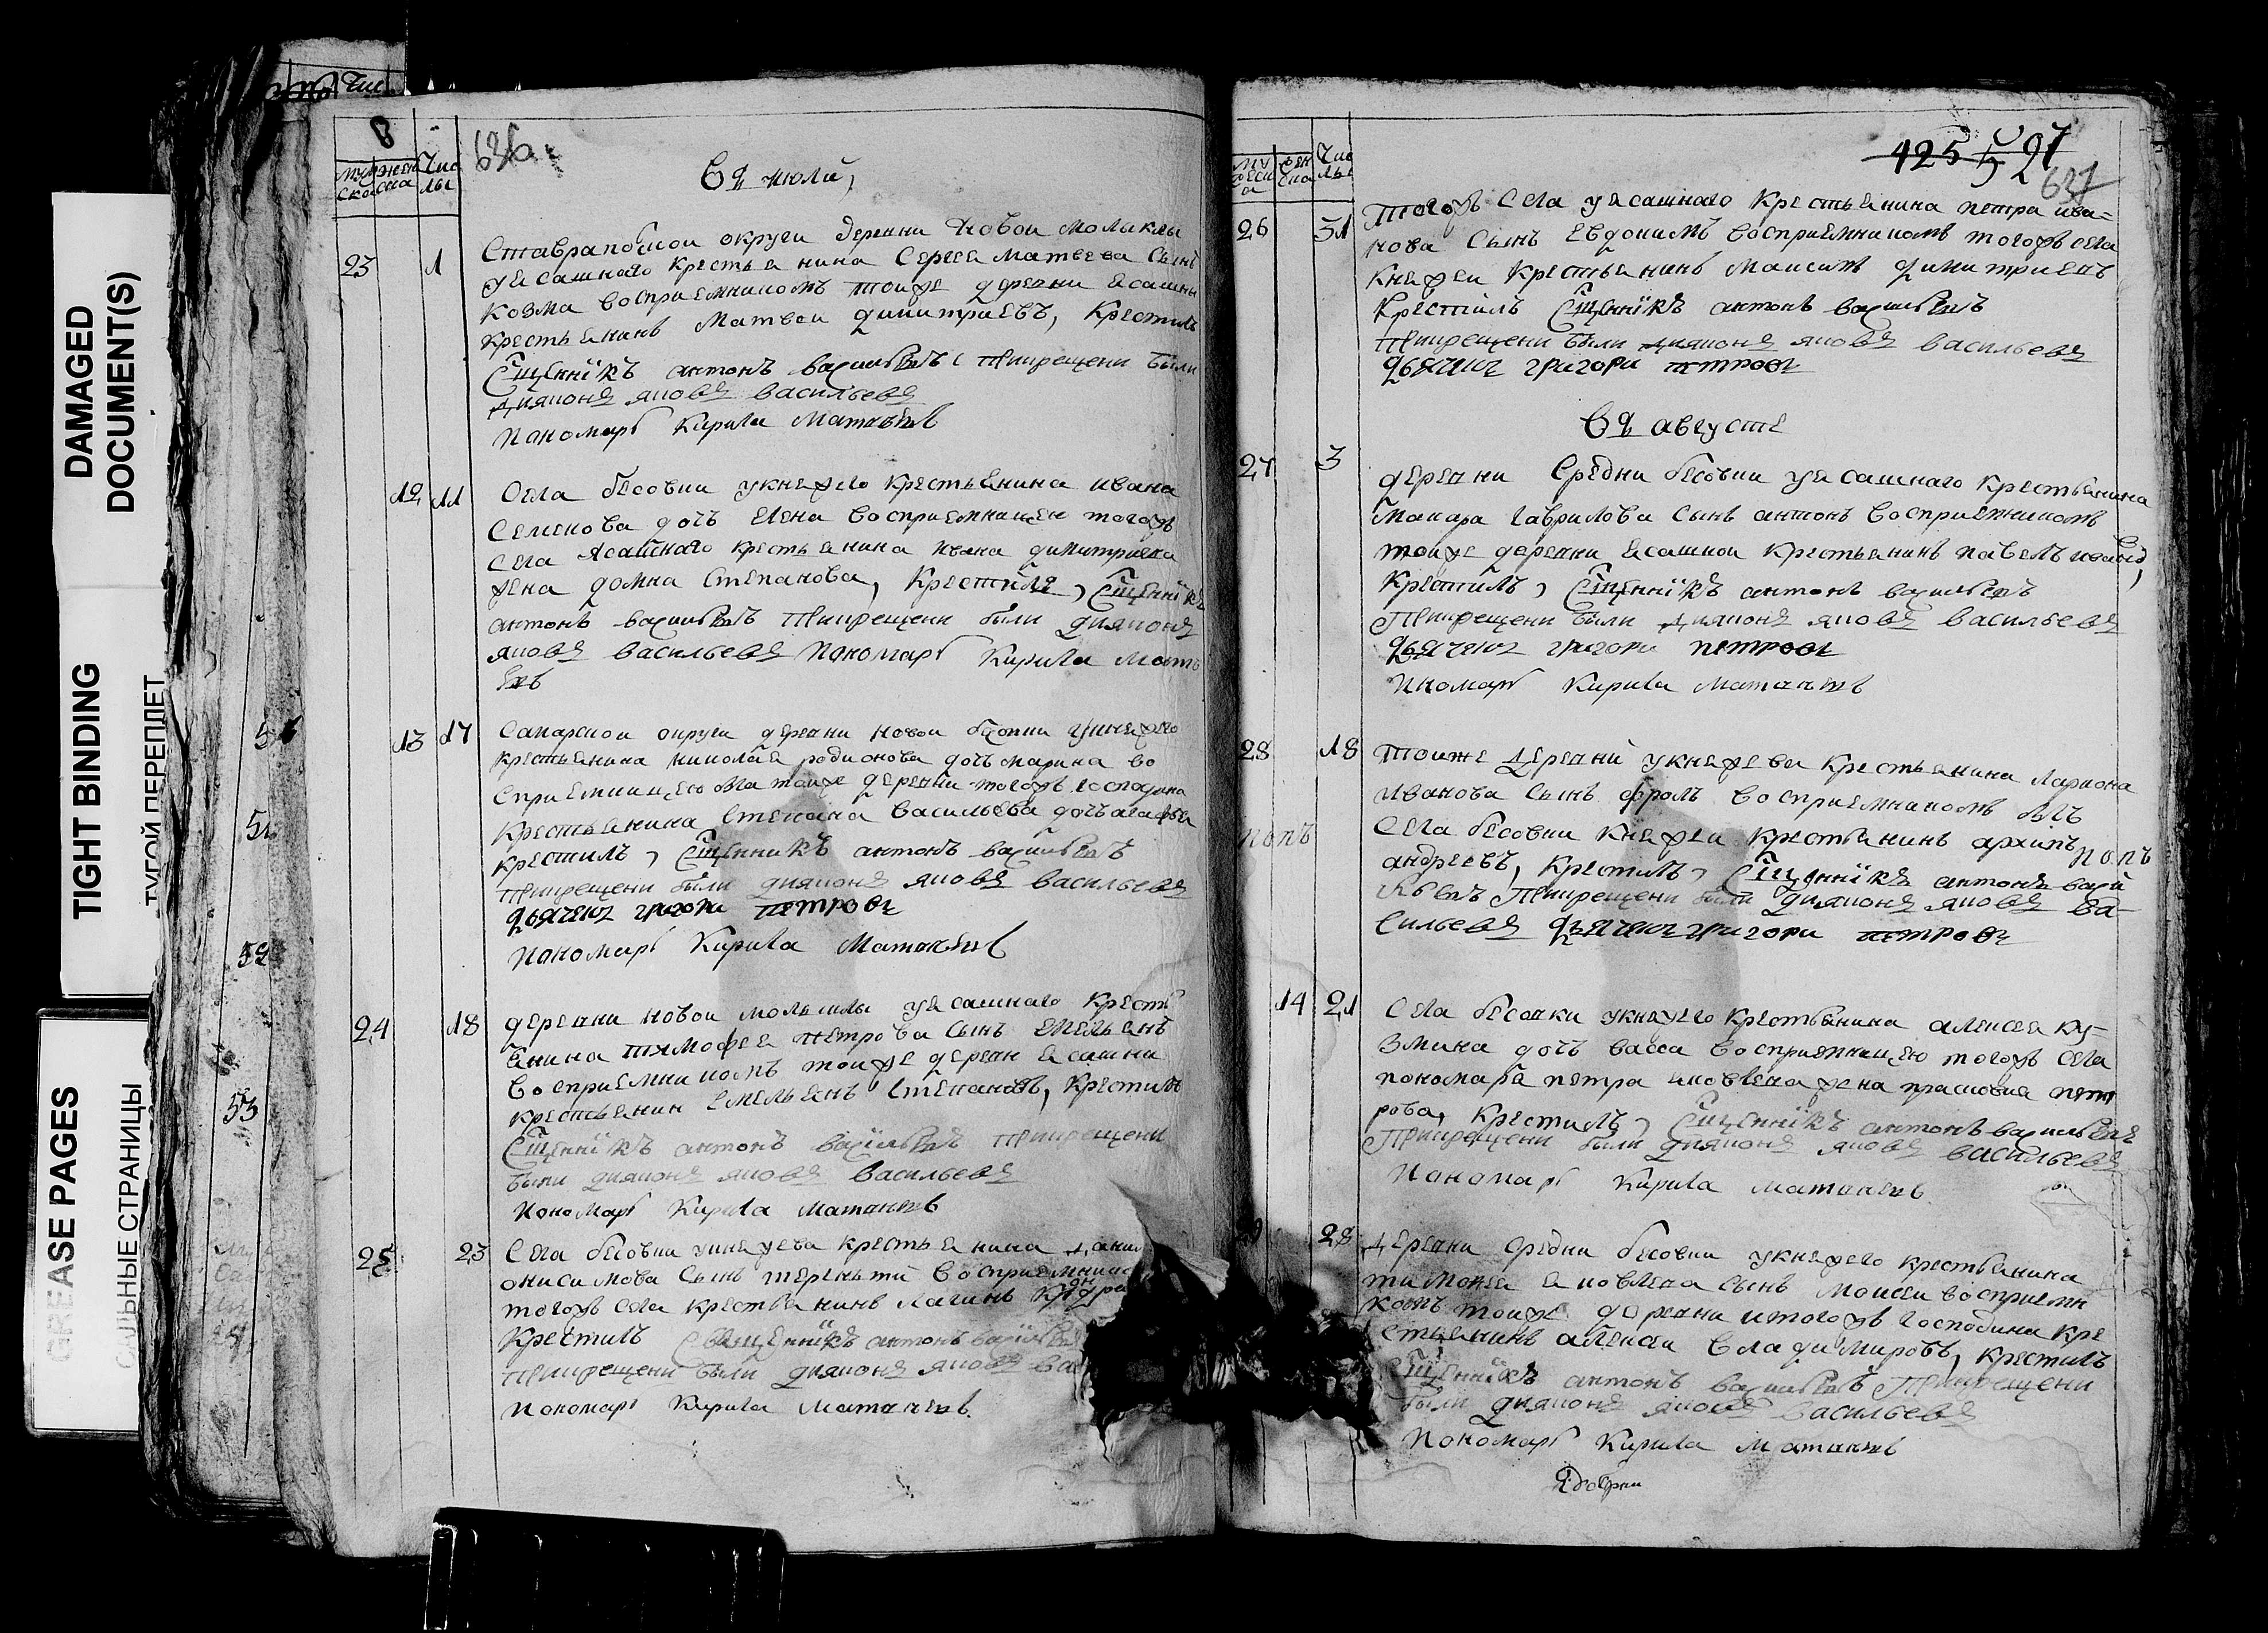 DAMAGED
DOCUMENT(S)
TIGHT BINDING
ТУГОЙ ПЕРЕПЛЕТ
GREASE PAGES
САЛЬНЫЕ СТРАНИЦЫ
53
8
636
мужеска
женска
Числы
Въ июли,
23 1 Ставрапо округи деревни Новои Малыклы
уясашнаго крестьянина Сергея Матвева Сынъ
козма восприемникомъ тоиже деревни ясашни
крестьянинъ Матвеи димитриевъ, Крестилъ
Сщенникъ антонъ васильевъ Приикрещени были
дияконъ яковъ васильевъ
Пономарь Кирила
12 11 Села бесовки укняжего крестьянина ивана
Семенова дочь Елена восприемницею тогожъ
села ясашнаго крестьянина ивана димитриева
жена домна Степанова, Крестилъ, Сщенникъ
антонъ васильевъ Приикрещени были дияконъ
яковъ васильевъ Пономарь Кирила
13 17 Самарскои округи деревни новои укняжего
крестьянина николая родионова дочь марина во
сприемницею была тоиже деревни тогожъ господина
крестьянина Степана Васильева дочь агафья
крестилъ, Сщенникъ антонъ васильевъ
Приикрещени были дияконъ яковъ васильевъ
дьячекъ григори петровъ
Пономарь Кирила
24 18 деревни новои малыклы уясашнаго кресть
янина тимофея петрова сынъ Емельянъ
восприемникомъ тоиже деревн ясашни
крестьянин Емельянъ Степановъ, Крестилъ
Сщенникъ антонъ васильевъ Приикрещени
были дияконъ яковъ васильевъ
Пономарь Кирила
25 23 Села бесовки укняжева крестьянина дани
онисимова сынъ терентй восприемник
тогожъ села крестьянинъ
Крестилъ Свщенникъ антонъ васильевъ
Приикрещени были дияконъ яковъ ва
Пономарь Кирила
425
527
637
мужеска
женска
Числы
26 31 Тогожъ Села уясашнаго Крестьянина петра ива-
нова Сынъ Евдокимъ восприемникомъ тогожъ села
княжеи Крестьянинъ Максимъ димитриевъ
Крестилъ Сщенникъ антонъ васильевъ
Приикрещени были дияконъ яковъ васильевъ
дьячекъ григори петровъ
Въ августе
27 3 деревни Средни бесовки уясашнаго крестьянина
Макара Гаврилова Сынъ антонъ восприемникомъ
тоиже деревни ясашнои Крестьянинъ павелъ
Крестилъ, Сщенникъ антонъ васильевъ
Приикрещени были дияконъ яковъ васильевъ
дьячекъ григори петровъ
Пномарь Кирила
28 18 Тоиже деревни укняжева Крестьянина Лариона
Иванова Сынъ фролъ восприемникомъ былъ
попъ Села бесовки княжеи крестьянинъ архипъ попъ
андреевъ, Крестилъ, Сщенникъ антонъ васи
льевъ Приикрещени были дияконъ яковъ ва-
сильевъ дьячекъ григори петровъ
14 21 Села бесовки укняжего крестьянина алексея ку-
змина дочь васса восприемницею тогожъ села
пономаря петра яковлева жена прасковья пет
рова, Крестилъ, Сщенникъ антонъ васильевъ
Приикрещени были дияконъ яковъ васильевъ
Пономарь Кирила
28 деревни средни бесовки укняжего крестьянина
яковлева сынъ моисеи восприемни
комъ тоиже деревни итогожъ господина кре
стьянинъ алексеи владимировъ, крестилъ
Сщенникъ антонъ васильевъ Приикрещени
были дияконъ яковъ васильевъ
Пономарь Кирила